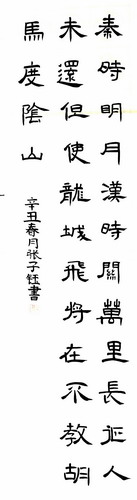 秦時明月漢時關萬里長征人
未還但使龍城飛將在不教胡
馬度陰山
辛丑春月张子钰書